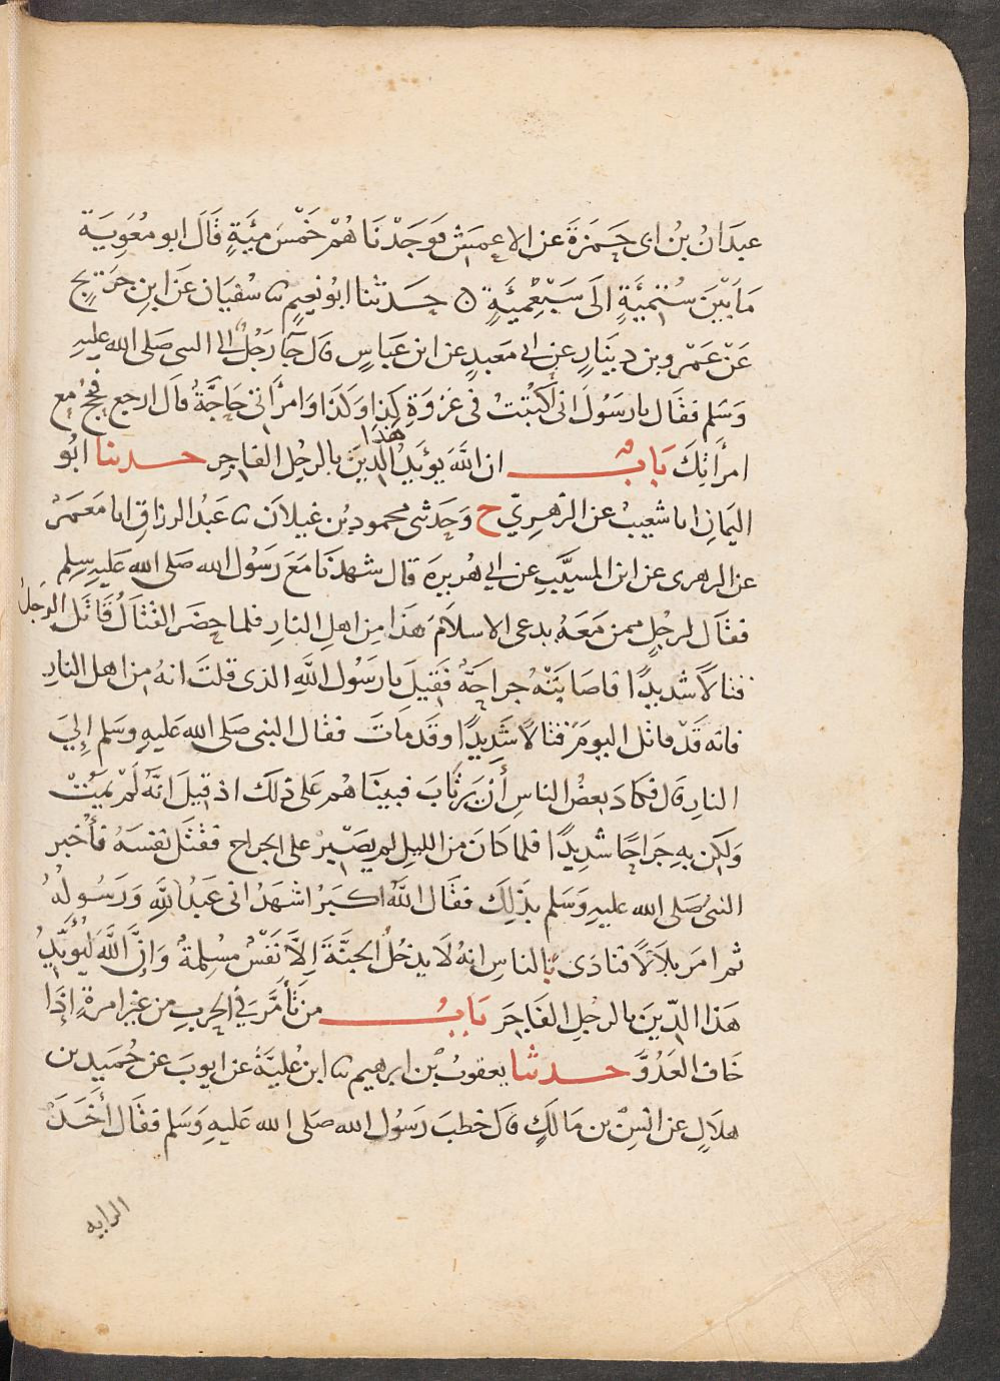 عبدَانُ بنُ ابى حَمزَةَ عن الاعمَش فوَجَدْنَا هُمْ خَمْسَ مِيَةٍ قَالَ ابو مُعَوِيَة
مَا بَيْنَ سُتّمِيَةٍ الَى سَبْعِمِيَةٍ ں حَدثنا ابُو نعيمٍ نا سُفيَان عَن ابنِ جرَيجٍ
عَنْ عَمْرو بن دِينَارٍ عن ابي مَعبدٍ عن ابن عَباسٍ قال جَا رَجُلٌ الى النبى صَلى الله عليهِ
وَسَلم فقَال يا رسَوُلَ انى اُكْتُتِبْتُ فى غزوَةِ كذَا وَكذَا وَامرأَتى حَاجَّةٌ قال ارجع فحُجَّ مع
امرأتِكَ بَابٌ ان اللهَ يؤيّدُ هذا الدينَ بالرجُلِ الفاجرِ حدثنا ابُو
اليمَانِ انا شعيبٌ عن الزهرِيّ ح وَحَدثنى محمودُ بن غيلَان نا عَبدُ الرزاقِ انا مَعمَرٌ
عن الزهرى عن ابن المسيَّبِ عن ابي هُريرةَ قال شهدنَا مَعَ رَسُول الله صَلى الله عَليهِ وسلم
فقَال لرجُلٍ ممن مَعَهُ يدعى الاسلَامَ هَذا مِن اهلِ النارِ فلما حضَر القتَالُ قَاتَل الرجلُ
قتالًا شديدًا فاصَابَتْهُ جراحَةٌ فَقِيلَ يا رَسُولَ اللَّهِ الذى قلتَ انهُ من اهل النارِ
فانه قَدْ قاتل اليومَ قتالًا شَدِيدًا وقَد مَاتَ فقال النبى صَلى الله عَليهِ وسَلم إِلىَ
النارِ قال فكادَ بعضُ الناسِ أَنْ يَرْتَابَ فبينَا هُم عَلى ذلكَ اذ قيلَ انَّهُ لَمْ يَمُتْ
ولكن بهِ جَراحًا شَدِيدًا فلما كانَ من الليلِ لم يصَبْرْ على الجراح فقَتَل نفسَهُ فأُخبر
النبىُ صَلى الله عليهِ وَسَلم بذَلِكَ فقَال اللَّهُ اكبَرُ اشهَدُ انى عَبدُ اللَّهِ وَرَسُولُهُ
ثم امَرَ بلَالًا فنادَى بالناسِ انهُ لَا يدخُلُ الجنَّةَ اِلاَّ نَفْسٌ مُسْلِمةٌ وَاِنَّ اللَّهَ لَيُؤَيّدُ
هَذا الدّينَ بالرجُلِ الفَاجِر بَابُ من تَأَمَّرَ فى الحربِ من غيرِ امرةٍ اذَا
خَافَ العَدُوَّ حدثنا يعقوبُ بْن ابرهيم نا ابن عُليَّةَ عن ايوبَ عن حُمَيد بن
هلَالٍ عن انَسِ بن مَالكٍ قال خطبَ رَسُول الله صَلى الله عَليهِ وَسَلم فقَال أَخَذَ
الرايه